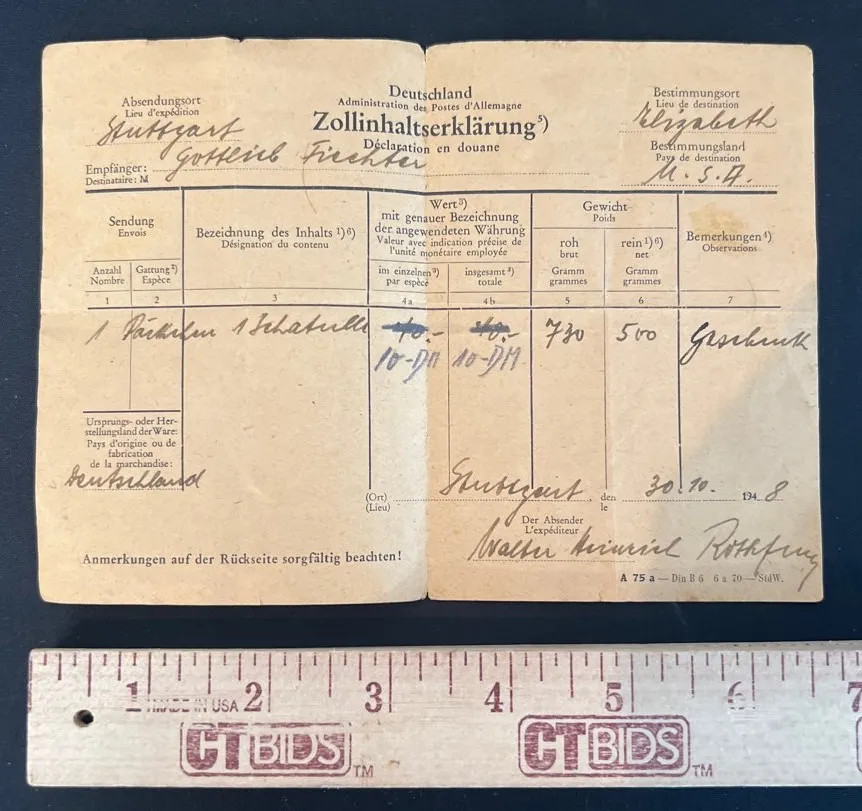 Deutschland
Administration des Postes d'Allemagne
Zollinhaltserklärung⁵)
Déclaration en douane
Absendungsort
Lieu d'expédition
Stuttgart
Bestimmungsort
Lieu de destination
Elizabeth
Bestimmungsland
Pays de destination
U. S. A.
Empfänger: Gottlieb Fiechter
Destinataire: M
Sendung
Envois
Bezeichnung des Inhalts ¹)⁶)
Désignation du contenu
Wert³)
mit genauer Bezeichnung
der angewendeten Währung
Valeur avec indication précise de
l'unité monétaire employée
Gewicht
Poids
Bemerkungen⁴)
Observations
Anzahl
Nombre
Gattung²)
Espèce
im einzelnen³)
par espèce
insgesamt³)
totale
roh
brut
Gramm
grammes
rein¹)⁶)
net
Gramm
grammes
1 2 3 4a 4b 5 6 7
1 Päckchen 1 Schatulle 730 500 Geschenk
10-DM 10-DM
Ursprungs- oder Her-
stellungsland der Ware:
Pays d'origine ou de
fabrication
de la marchandise:
Deutschland
(Ort) Stuttgart, den 30.10. 1948
(Lieu) le
Der Absender
L'expéditeur
Walter Heinrich
Anmerkungen auf der Rückseite sorgfältig beachten!
A 75 a — Din B 6 6 a 70 — StdW.
1 2 3 4 5 6 7
MADE IN USA
CTBIDS TM CTBIDS TM